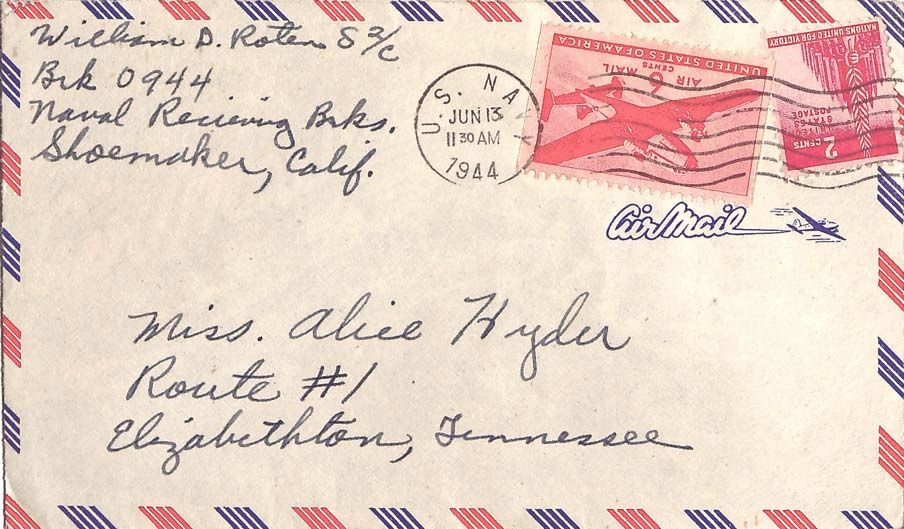 William D. Roten S 2/c
Brk 0944
Naval Recieving Brks.
Shoemaker, Calif.
U. S. NAVY
JUN 13
11 30 AM
1944
UNITED STATES OF AMERICA
AIR 6 MAIL
CENTS
NATIONS UNITED FOR VICTORY
UNITED
STATES
POSTAGE
2 CENTS
Air Mail
Miss. Alice Hyder
Route #1
Elizabethton, Tennessee